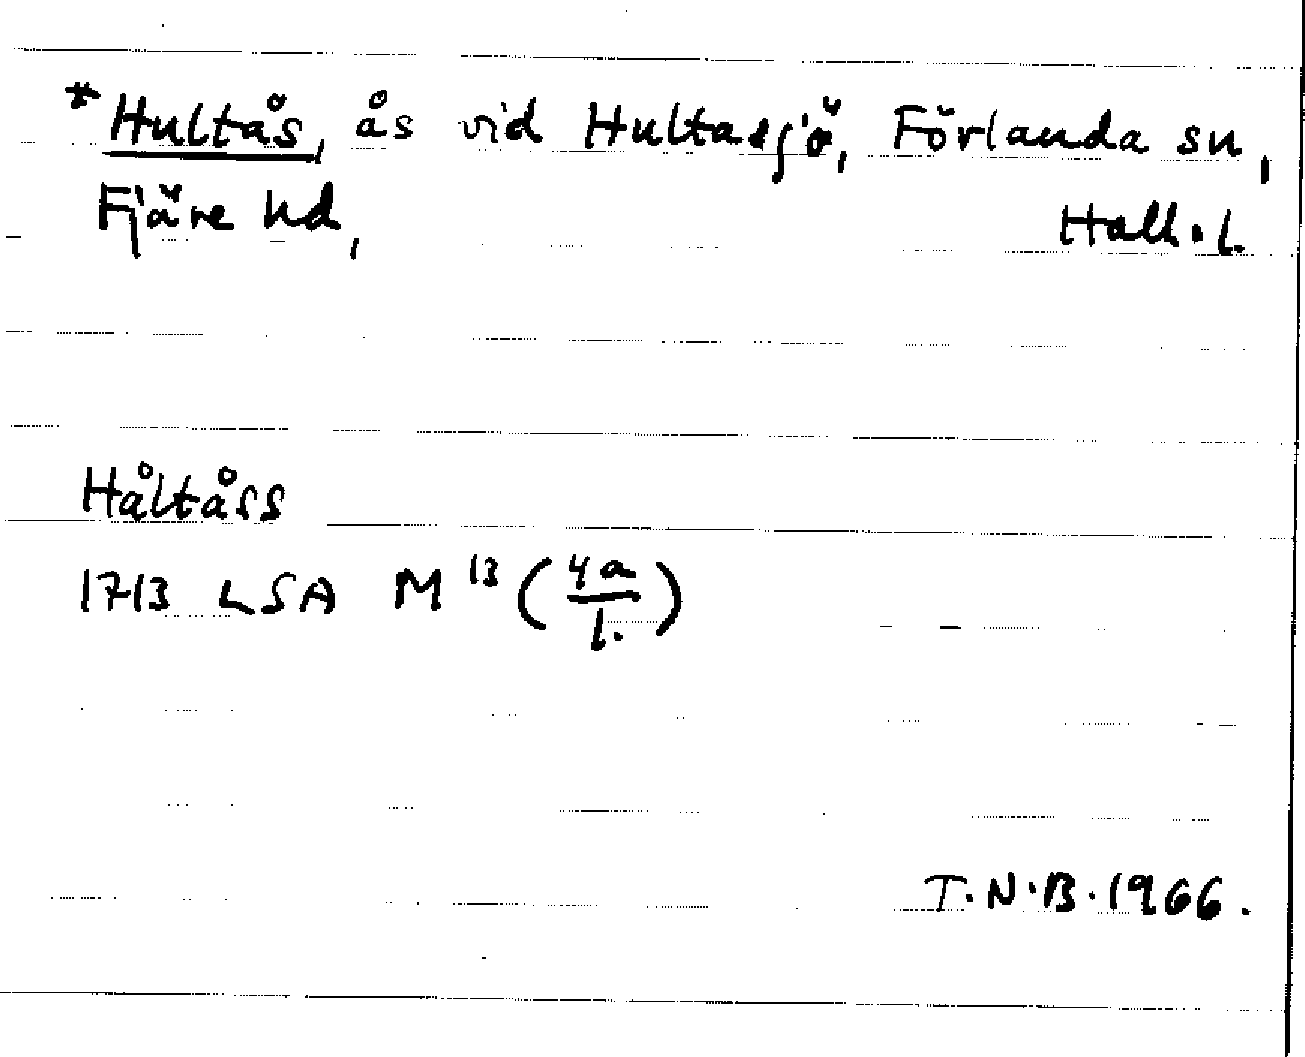 *Hultås, ås vid Hultasjö, Förlanda sn,
Fjäre hd, Hall. l.
Håltåss
1713 LSA M¹³ (4a/1.)
T.N.B. 1966.